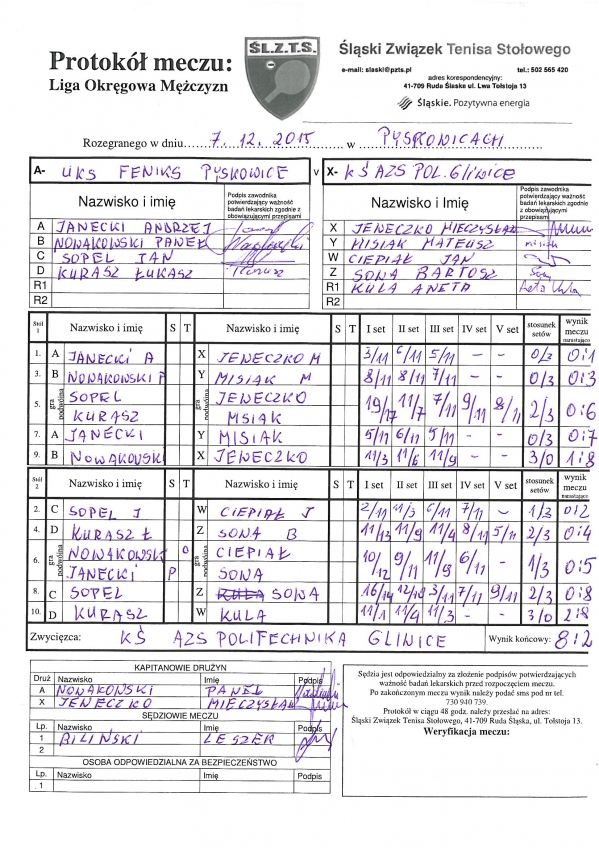 Protokół meczu:
Liga Okręgowa Mężczyzn
ŚL.Z.T.S.
Śląski Związek Tenisa Stołowego
e-mail: slaski@pzts.pl tel.: 502 565 420
adres korespondencyjny:
41-709 Ruda Śląska ul. Lwa Tołstoja 13
Śląskie. Pozytywna energia
Rozegranego w dniu 7. 12. 2015 w PYSKOWICACH
A- UKS FENIKS PYSKOWICE v X- KŚ AZS POL. GLIWICE
Nazwisko i imię Podpis zawodnika potwierdzający ważność badań lekarskich zgodnie z obowiązującymi przepisami Nazwisko i imię Podpis zawodnika potwierdzający ważność badań lekarskich zgodnie z obowiązującymi przepisami
A JANECKI ANDRZEJ X JENECZKO MIECZYSŁAW
B NOWAKOWSKI PAWEŁ Y MISIAK MATEUSZ
C SOPEL JAN W CIEPIAŁ JAN
D KURASZ ŁUKASZ Z SOWA BARTOSZ
R1 R1 KULA ANETA
R2 R2
Stół 1 Nazwisko i imię S T Nazwisko i imię S T I set II set III set IV set V set stosunek setów wynik meczu narastająco
1. A JANECKI A X JENECZKO M 3/11 6/11 5/11 - - 0/3 0:1
3. B NOWAKOWSKI P Y MISIAK M 8/11 8/11 7/11 - - 0/3 0:3
5. gra podwójna SOPEL KURASZ gra podwójna JENECZKO MSIAK 19/17 11/7 7/11 9/11 8/11 2/3 0:6
7. A JANECKI Y MISIAK 5/11 6/11 5/11 - - 0/3 0:7
9. B NOWAKOWSKI X JENECZKO 11/3 11/6 11/9 - - 3/0 1:8
Stół 2 Nazwisko i imię S T Nazwisko i imię S T I set II set III set IV set V set stosunek setów wynik meczu narastająco
2. C SOPEL J W CIEPIAŁ J 2/11 11/3 6/11 7/11 - 1/3 0:2
4. D KURASZ Ł Z SOWA B 11/13 11/9 11/4 8/11 5/11 2/3 0:4
6. gra podwójna NOWAKOWSKI JANECKI gra podwójna CIEPIAŁ SOWA 10/12 9/11 11/9 6/11 - 1/3 0:5
8. C SOPEL Z KULA SOWA 16/14 12/10 3/11 7/11 9/11 2/3 0:8
10. D KURASZ W KULA 11/1 11/4 11/3 - - 3/0 2:8
Zwycięzca: KŚ AZS POLITECHNIKA GLIWICE Wynik końcowy: 8:2
KAPITANOWIE DRUŻYN
Druż Nazwisko Imię Podpis
A NOWAKOWSKI PAWEŁ
X JENECZKO MIECZYSŁAW
SĘDZIOWIE MECZU
Lp. Nazwisko Imię Podpis
1 BILIŃSKI LESZEK
2
OSOBA ODPOWIEDZIALNA ZA BEZPIECZEŃSTWO
Lp. Nazwisko Imię Podpis
1
Sędzia jest odpowiedzialny za złożenie podpisów potwierdzających
ważność badań lekarskich przed rozpoczęciem meczu.
Po zakończonym meczu wynik należy podać sms pod nr tel.
730 940 739.
Protokół w ciągu 48 godz. należy przesłać na adres:
Śląski Związek Tenisa Stołowego, 41-709 Ruda Śląska, ul. Tołstoja 13.
Weryfikacja meczu: